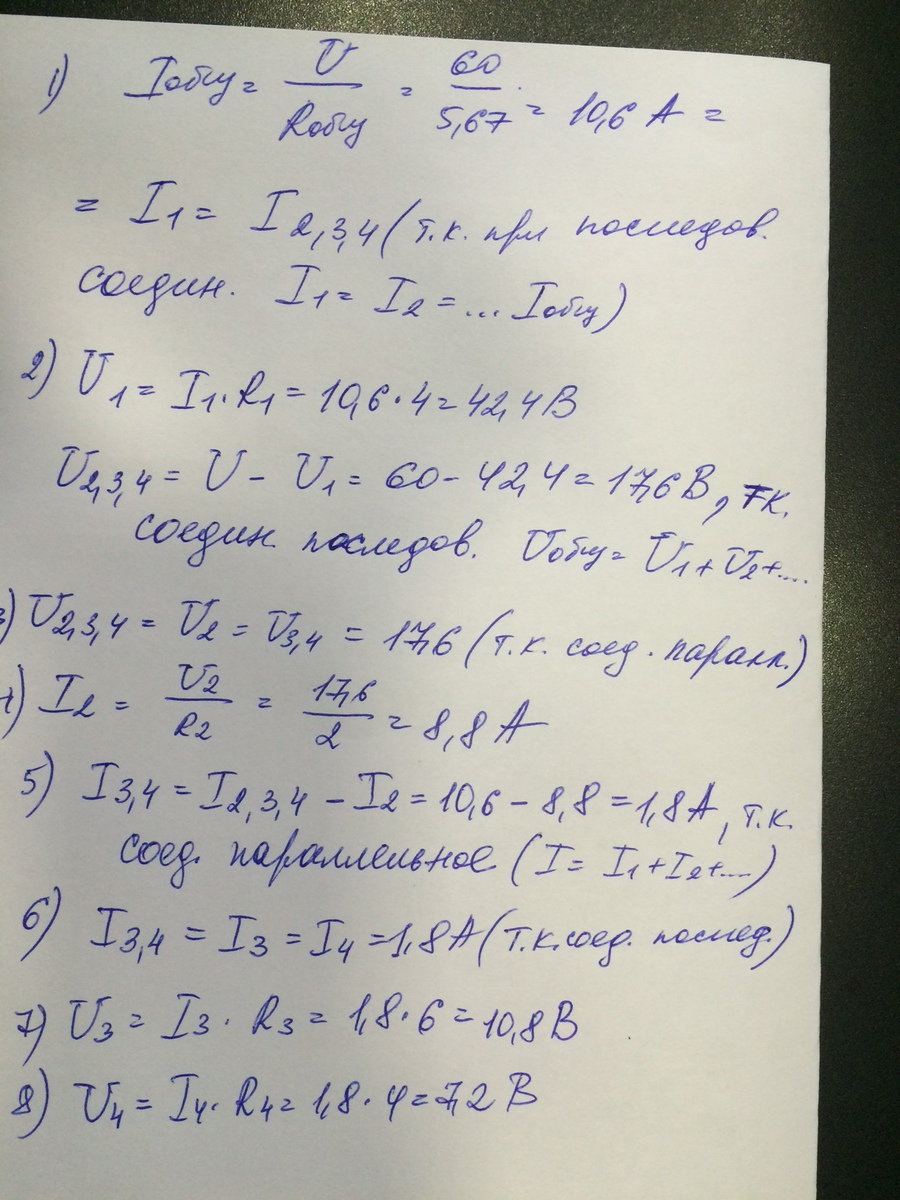 1) Iобщ = U / Rобщ = 60 / 5,67 = 10,6 А =
= I1 = I2,3,4 (т.к. при последов.
соедин. I1 = I2 = ... Iобщ)
2) U1 = I1 · R1 = 10,6 · 4 = 42,4 В
U2,3,4 = U - U1 = 60 - 42,4 = 17,6 В, тк.
соедин. последов. Uобщ = U1 + U2 + ...
) U2,3,4 = U2 = U3,4 = 17,6 (т.к. соед. паралл.)
) I2 = U2 / R2 = 17,6 / 2 = 8,8 А
5) I3,4 = I2,3,4 - I2 = 10,6 - 8,8 = 1,8 А, т.к.
соед. параллельное (I = I1 + I2 + ...)
6) I3,4 = I3 = I4 = 1,8 А (т.к. соед. послед.)
7) U3 = I3 · R3 = 1,8 · 6 = 10,8 В
8) U4 = I4 · R4 = 1,8 · 4 = 7,2 В